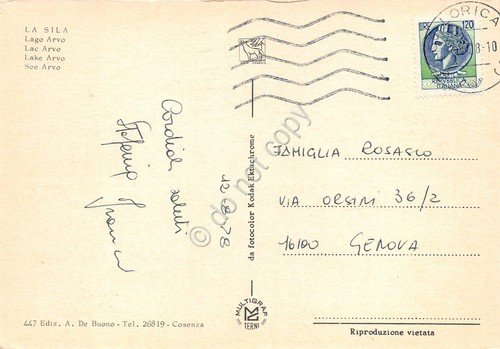 LA SILA
Lago Arvo
Lac Arvo
Lake Arvo
See Arvo
Cordiali saluti
Stefania
Franca
12-8-78
da fotocolor Kodak Ektachrome
LORICA
8-10
120
ITALIANA
FAMIGLIA ROSASCO
VIA ORSINI 36/2
16100 GENOVA
do not copy
MULTIGRAF
TERNI
447 Ediz. A. De Buono - Tel. 26819 - Cosenza
Riproduzione vietata